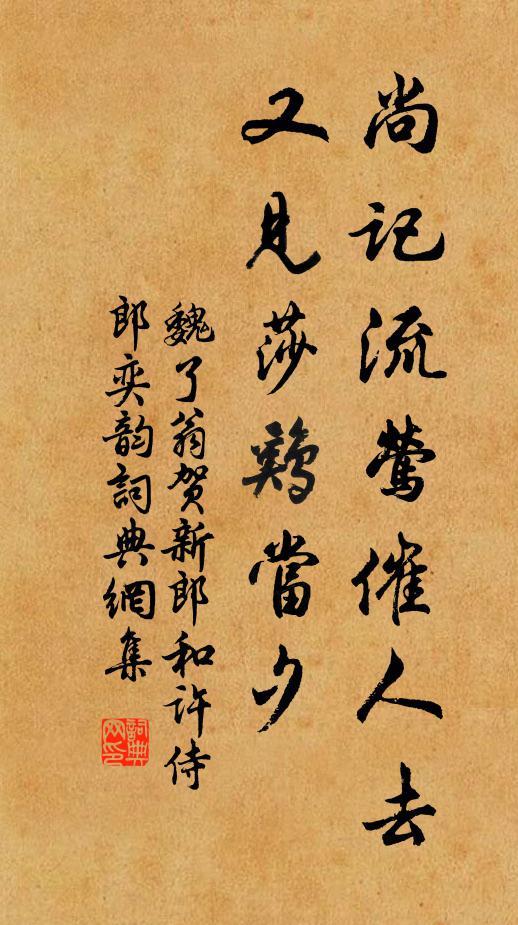 尚记流莺催人去
又见莎鷄當夕
魏了翁贺新郎和许侍
郎奕韵詞典網集
詞典网印